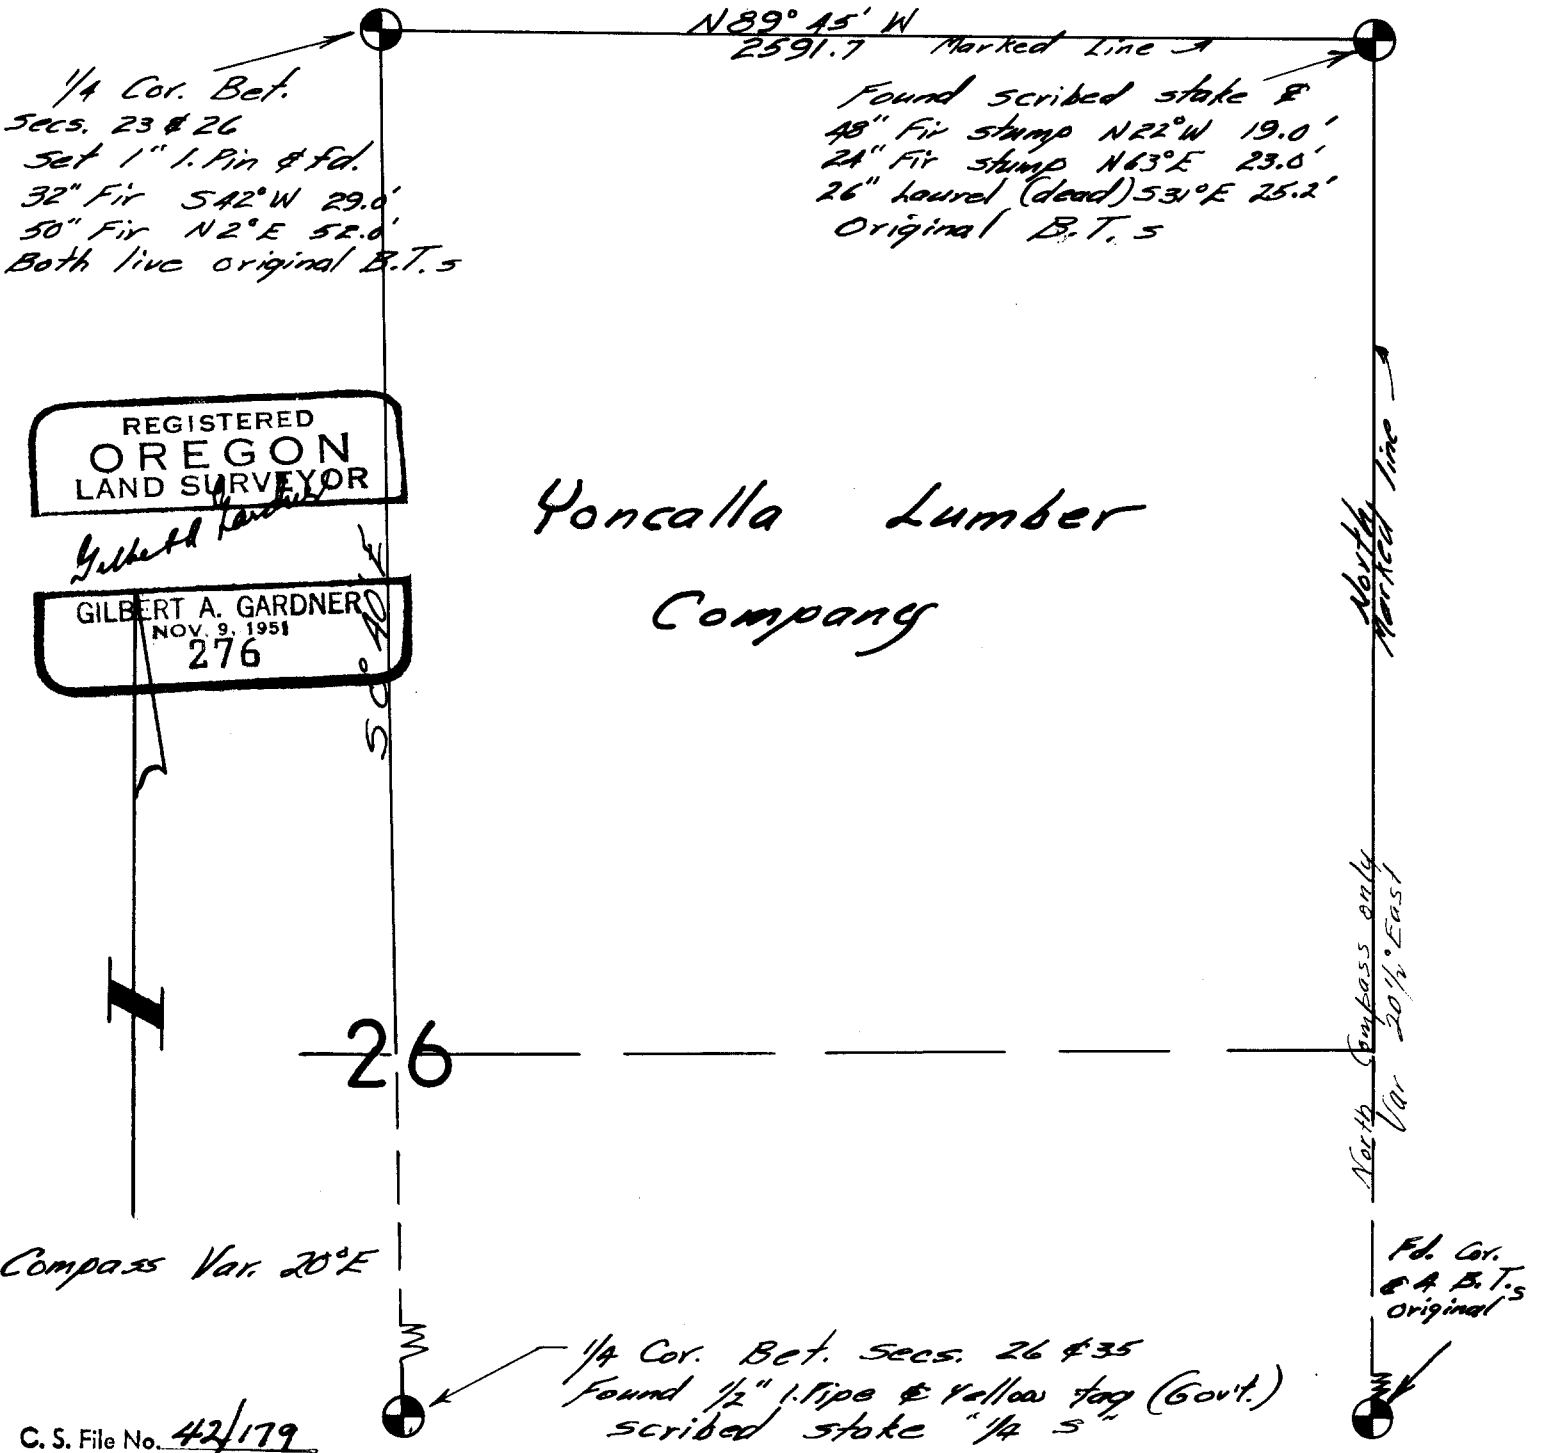 N 89° 45' W
2591.7 Marked Line
1/4 Cor. Bet.
Secs. 23 & 26
Set 1" I. Pin & fd.
32" Fir S 42° W 29.0'
50" Fir N 2° E 52.0'
Both live original B.T.s
Found scribed stake &
48" Fir stump N 22° W 19.0'
24" Fir stump N 63° E 23.0'
26" Laurel (dead) S 31° E 25.2'
Original B.T.s
REGISTERED
OREGON
LAND SURVEYOR
Gilbert A Gardner
GILBERT A. GARDNER
NOV. 9, 1951
276
S 0° 40' E
Yoncalla Lumber
Company
North
Marked line
North Compass only
Var 20 1/2° East
26
Compass Var. 20° E
Fd. Cor.
& 4 B.T.s
original
1/4 Cor. Bet. Secs. 26 & 35
Found 1/2" I. Pipe & Yellow tag (Gov't.)
scribed stake "1/4 S"
C. S. File No. 42/179